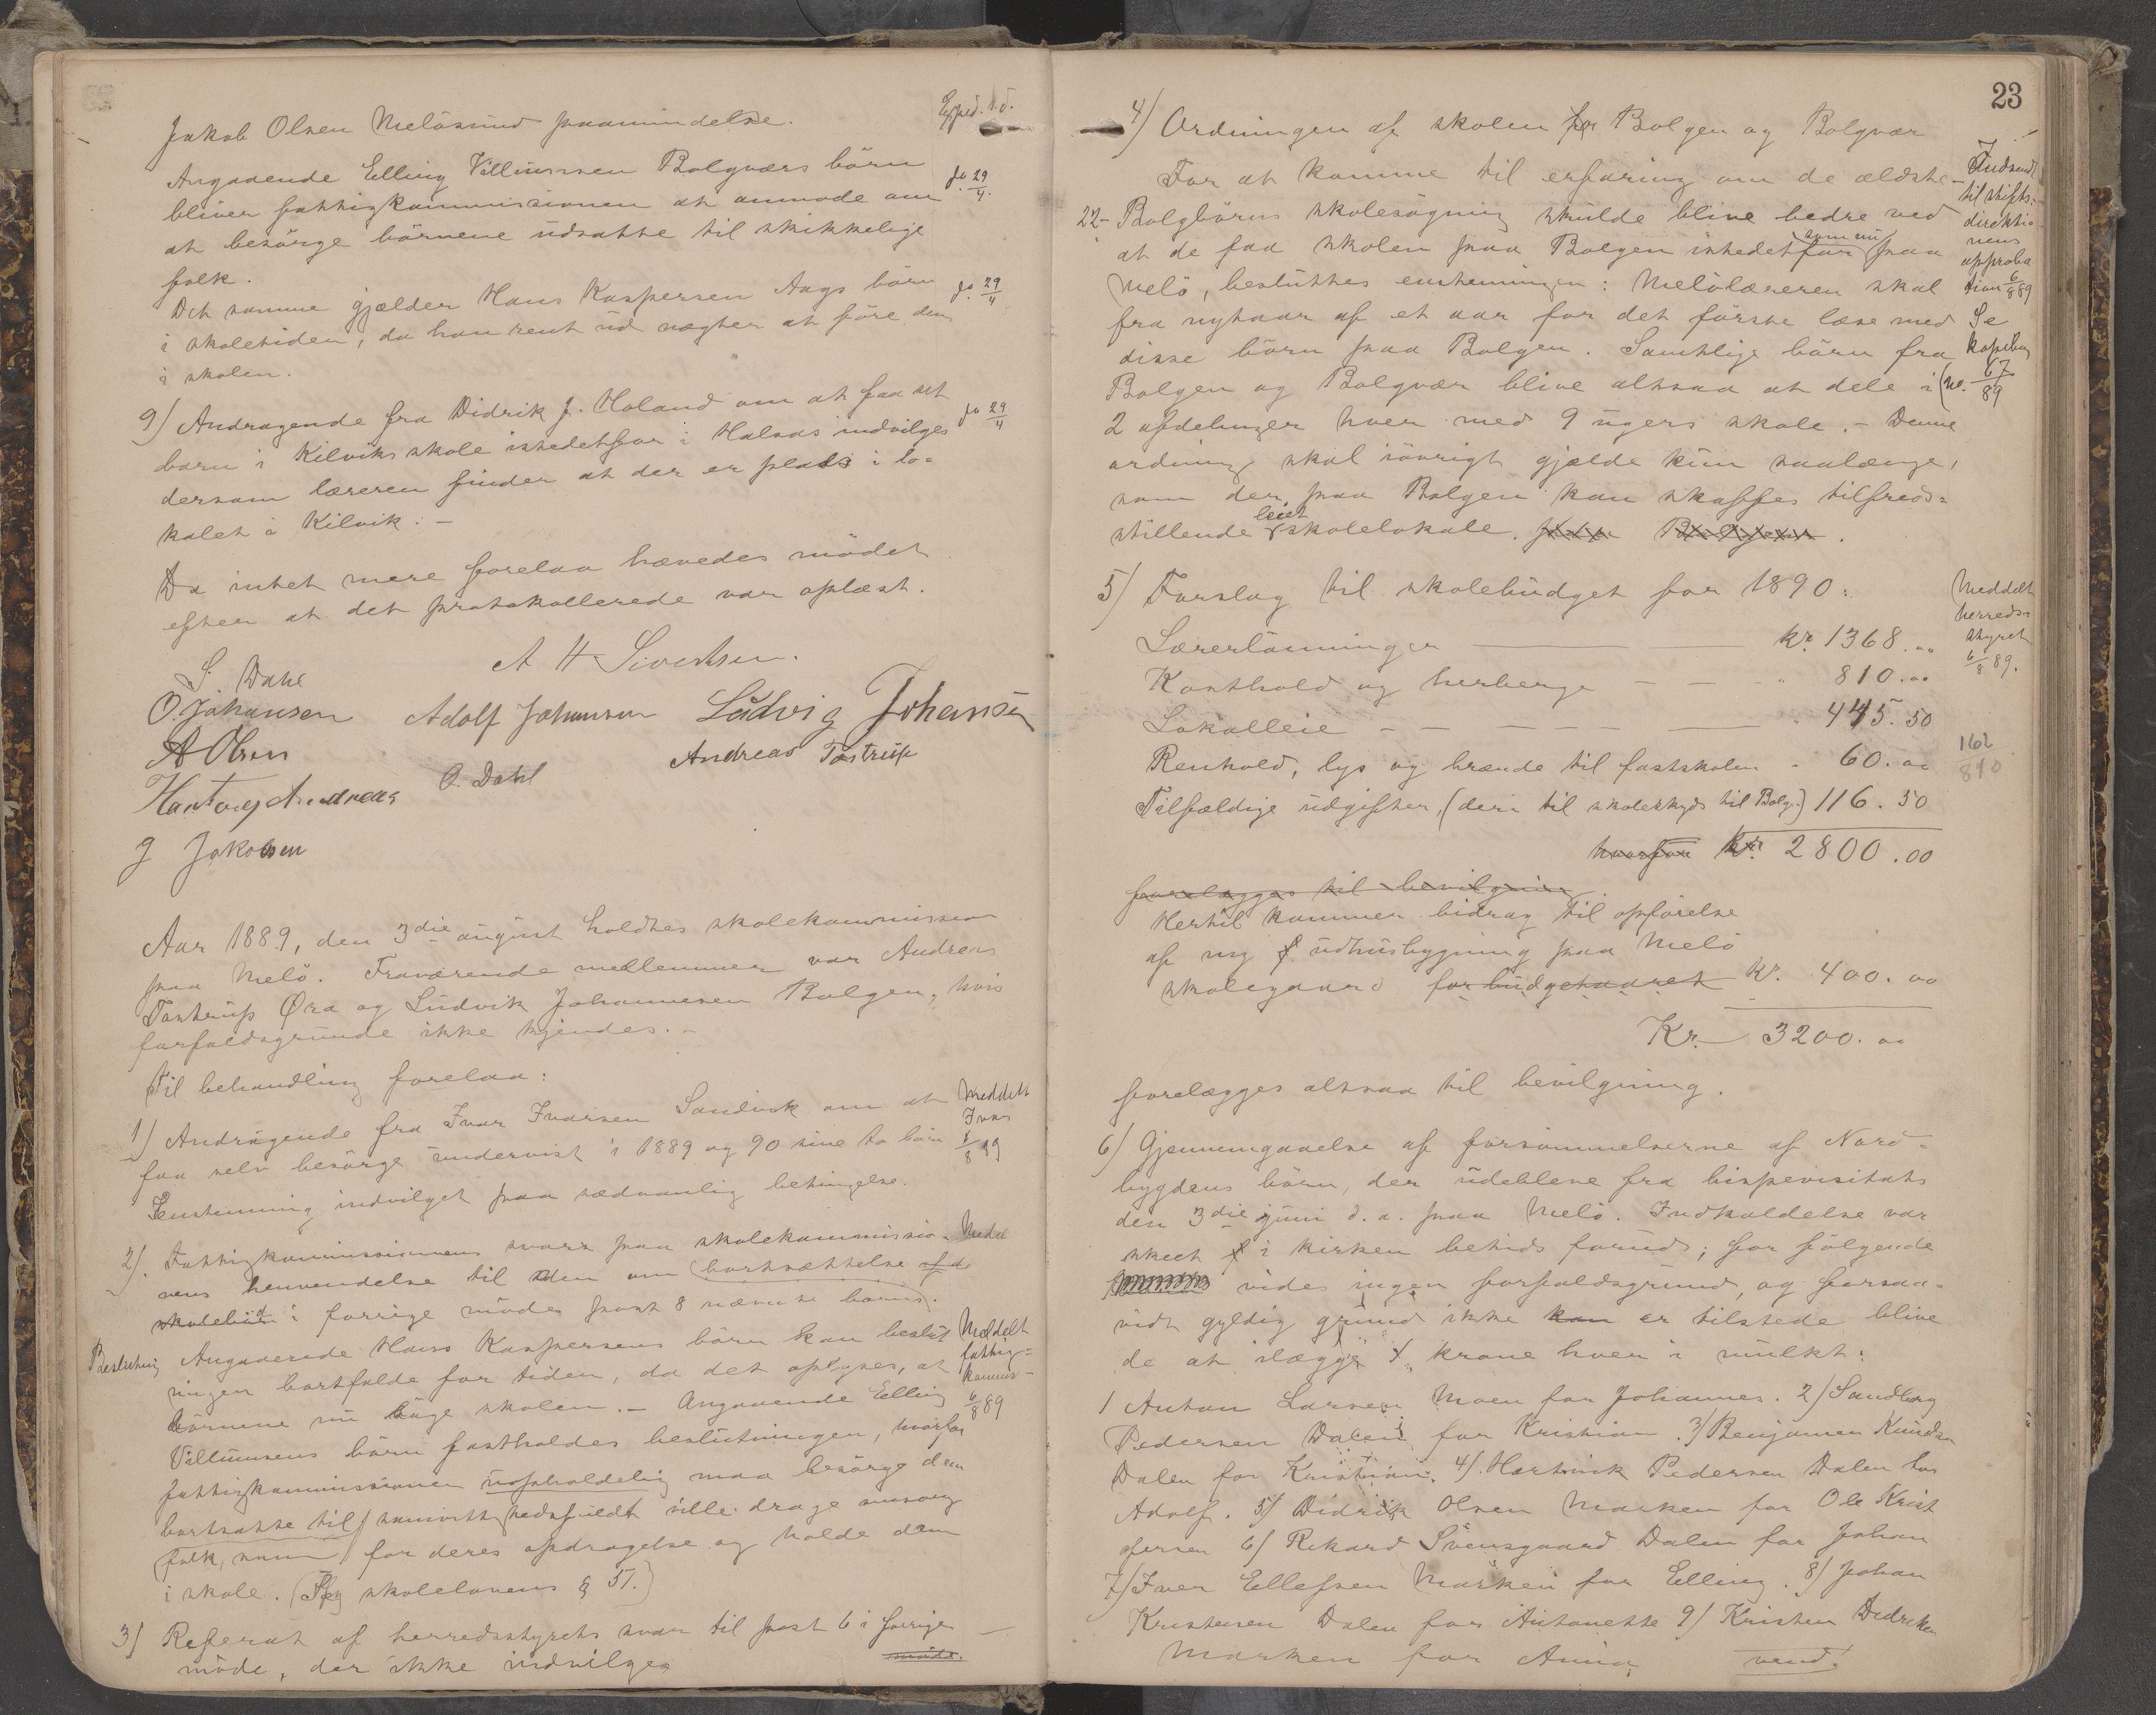 Jakob Olsen Melösund paamindelse.
Exped. s.d.
Angaaende Elling Villumsen Bolgværs börn
bliver fattigkommissionen at anmode om
at besörge börnene udsatte til skikkelige
folk.
do 29/4.
Det samme gjælder Hans Kaspersen Aags börn
i skoletiden, da han rent ud nægter at före dem
i skolen.
do 29/4
9) Andragende fra Didrik J. Haland om at faa sit
barn i Kilviks skole istedetfor i Halsas indvilges
dersom læreren finder at der er plads i lo-
kalet i Kilvik. –
do 29/4
Da intet mere forelaa hævedes mödet
efter at det protokollerede var oplæst.
A H Sivertsen.
S. Dahl
O. Johansen Adolf Johansen Ludvig Johansen
A Olsen Andreas Tostrup
Hartvig Andreas O. Dahl
J Jakobsen
Aar 1889, den 3die august holdtes skolekommission
paa Melö. Fraværende medlemmer var Andreas
Tostrup Øra og Ludvik Johannesen Bolgen, hvis
forfaldsgrunde ikke kjendes. –
Til behandling forelaa:
1) Andragende fra Ivar Ivarsen Sandvik om at
faa selv besörge undervist i 1889 og 90 sine to börn
Enstemmig indvilget paa sædvanlig betingelse.
Meddelt
Ivar
8/89
2). Fattigkommissionens svar paa skolekommissio-
nens henvendelse til den om bortsættelse af de
skolebörn i forrige möde post 8 nævnte börns.
Beslutning Angaaende Hans Kaspersens börn kan beslut
ningen bortfalde for tiden, da det oplyses, at
börnene nu söge skolen. – Angaaende Elling
Villumsens börn fastholdes beslutningen, hvorfor
fattigkommissionen uopholdelig maa besörge dem
bortsatte til samvittighedsfuldt ville drage omsorg
folk, som for deres opdragelse og holde dem
i skole. (Jfr skolelovens § 51.)
Meddelt
fattig-
kommis-
6/8 89
3) Referat af herredsstyrets svar til post 6 i forrige
möde, der ikke indvilges
möde.
23
4) Ordningen af skolen for Bolgen og Bolgvær
For at komme til erfaring om de ældste
22- Bolgbörns skolesögning skulde blive bedre ved
at de faa skolen paa Bolgen istedetfor som nu paa
Melö, besluttes enstemmigen: Melölæreren skal
fra nytaar af et aar for det förste læse med
disse börn paa Bolgen. Samtlige börn fra
Bolgen og Bolgvær blive altsaa at dele i
2 afdelinger hver med 9 ugers skole. – Denne
ordning skal iövrigt gjælde kun saalænge,
som der paa Bolgen kan skaffes tilfreds-
stillende leiet skolelokale. paa Bolgen.
Indsendt
til stifts-
direktio
nens
approba
tion 6/8 89
Se
kopibog
no. 67/89
5) Forslag til skolebudget for 1890:
Lærerlönninger kr. 1368.00
Kosthold og herberge 810.00
Lokalleie 445.50
Renhold, lys og brænde til fastskolen 60.00
Tilfældige udgifter, (deri til skoleskyds til Bolg.) 116.50
hvorfor kr. 2800.00
Meddelt
herreds-
styret
6/8 89.
162
810
forelægges til bevilgning
Hertil kommer bidrag til opförelse
af ny udhusbygning paa Melö
skolegaard for budgetaaret kr. 400.00
Kr. 3200.00
forelægges altsaa til bevilgning.
6) Gjennemgaaelse af forsömmelserne af Nord-
bygdens börn, der udebleve fra bispevisitats
den 3die juni d.a. paa Melö. Indkaldelse var
skeet i kirken betids forud; for fölgende
vides ingen forfaldsgrund, og forsaa-
vidt gyldig grund ikke kan er tilstede blive
de at ilægge 1 krone hver i mulkt:
1 Anton Larsen Moen for Johannes. 2) Sandberg
Pedersen Dalen for Kristian. 3) Benjamin Knudsen
Dalen for Kristian. 4). Hartvik Pedersen Dalen for
Adolf. 5) Didrik Olsen Marken for Ole Krist
ofersen 6) Rikard Svensgaard Dalen for Johan
7) Iver Ellefsen Marken for Elling. 8) Johan
Kristensen Dalen for Antonette 9) Kristen Didriksen
Marken for Anna. vend!